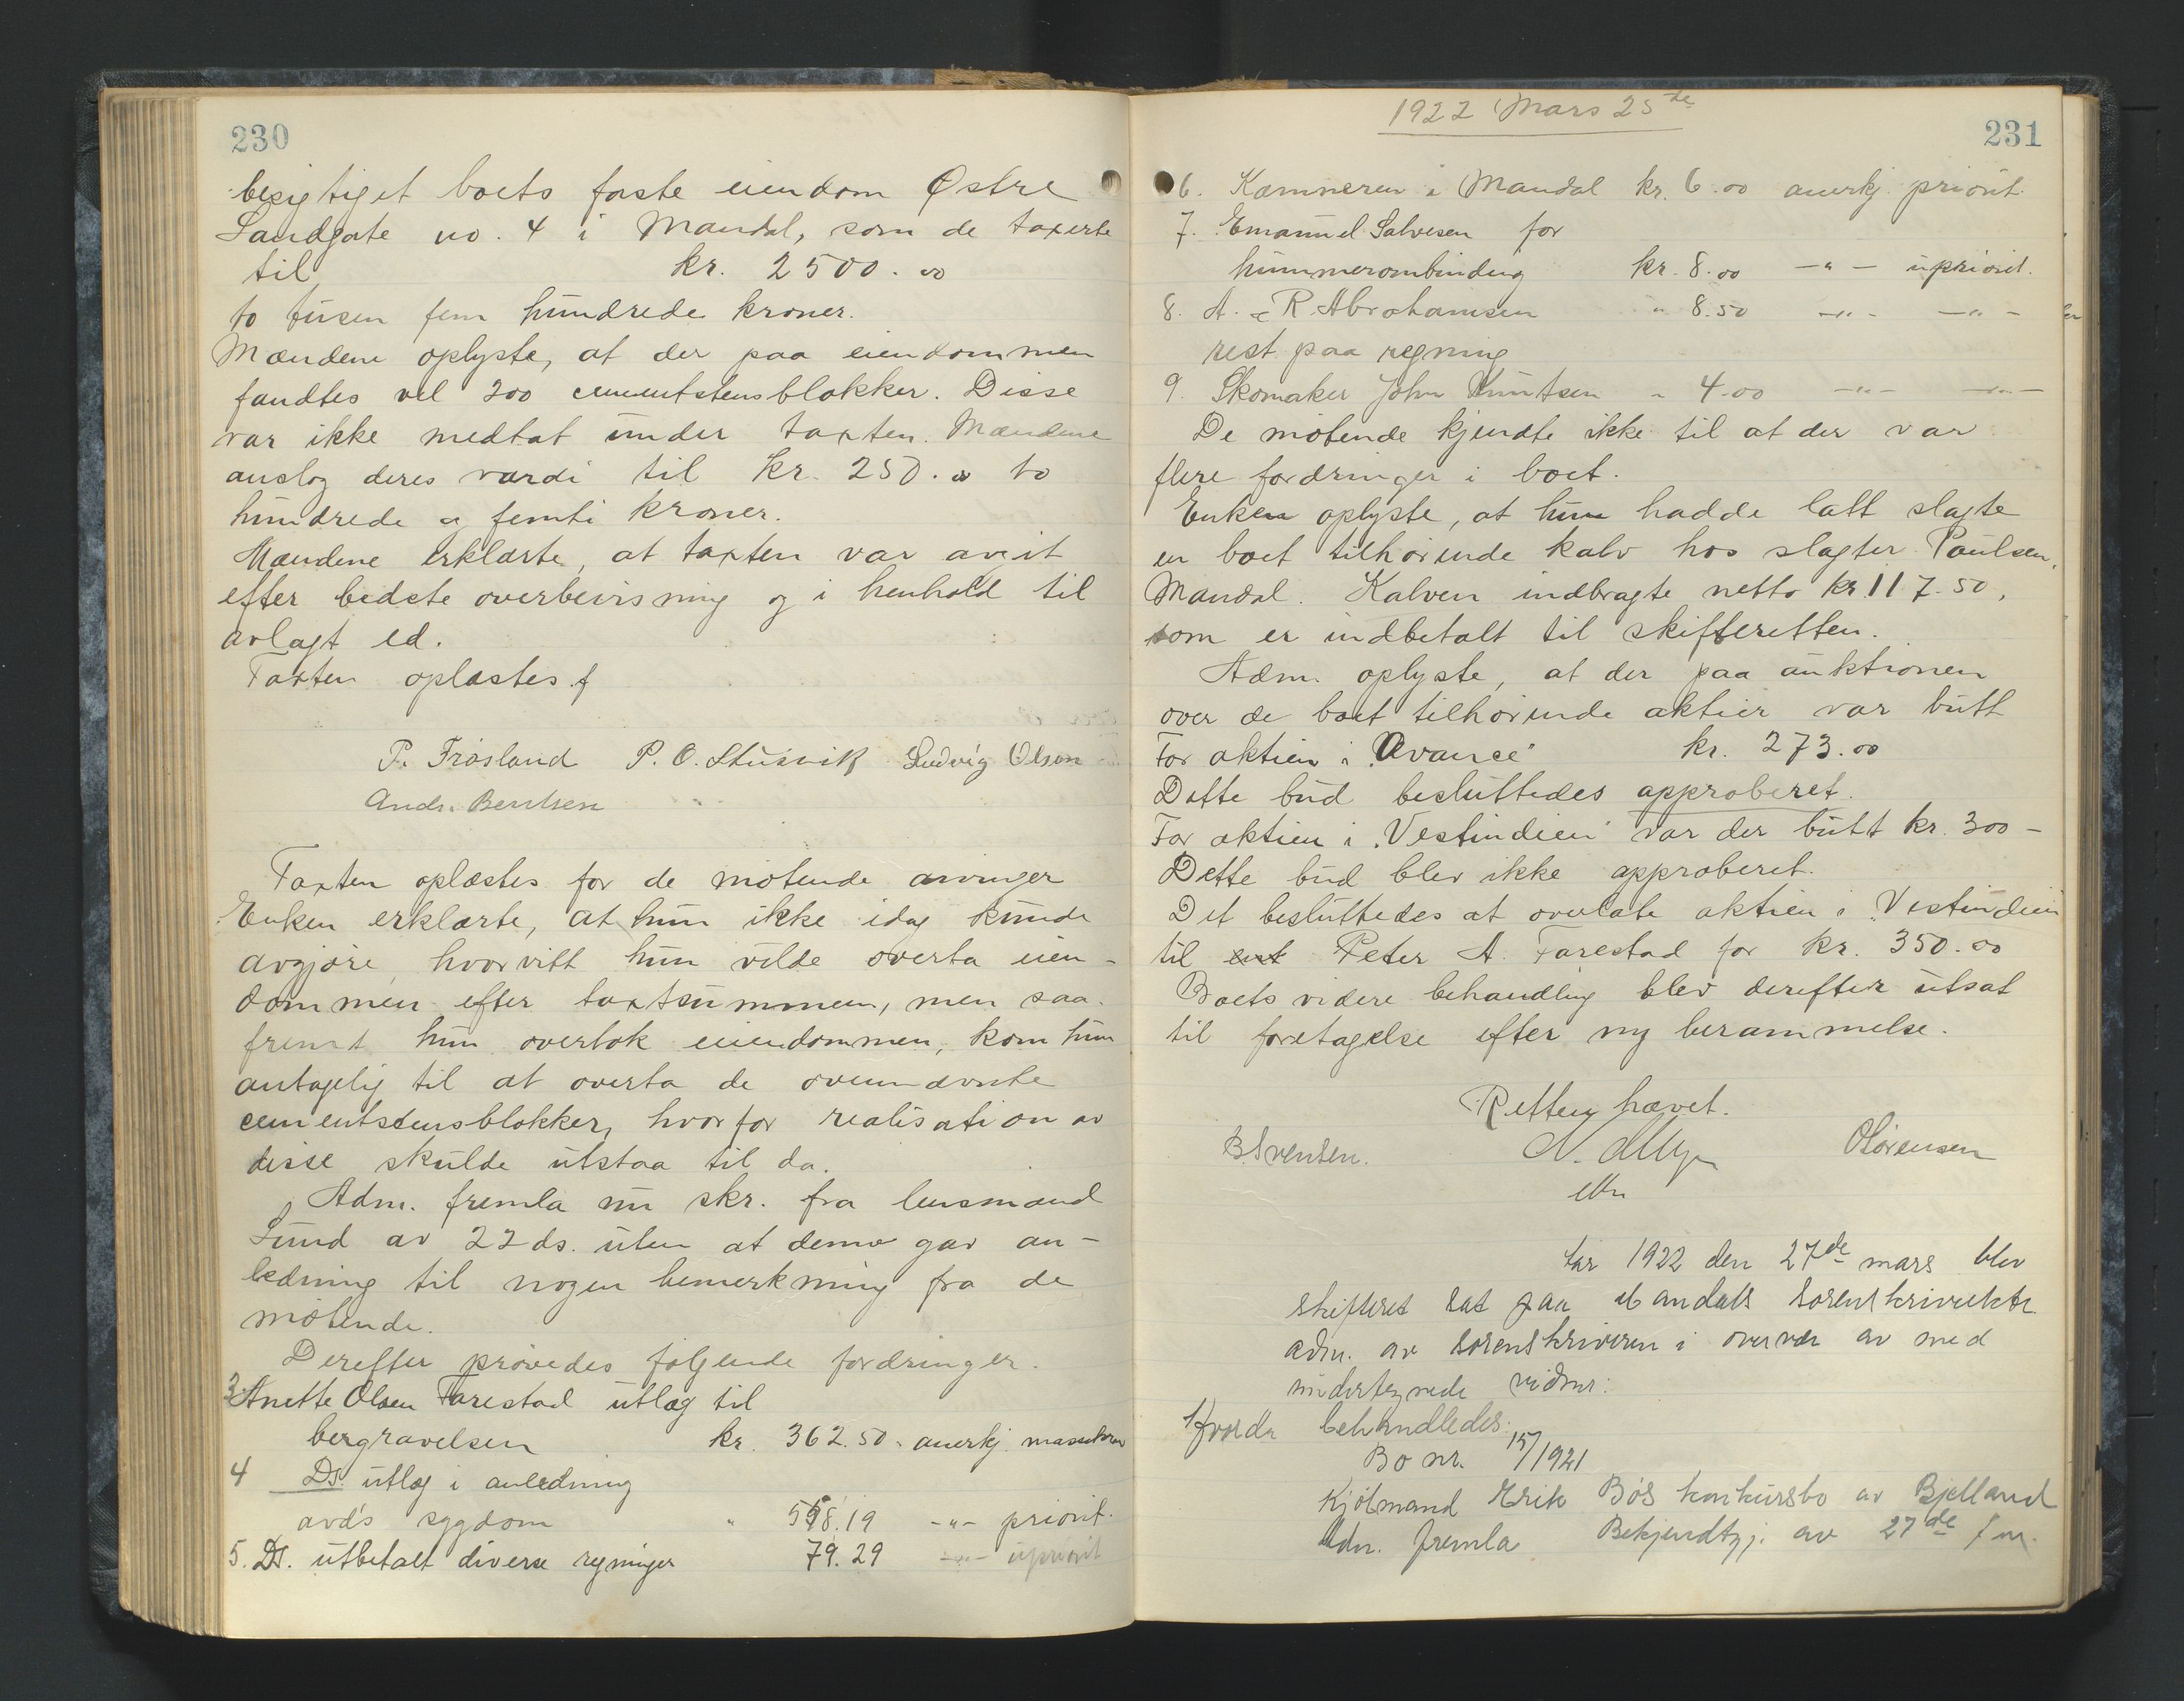 230
besigtiget boets faste eiendom Østre
Sandgate no. 4 i Mandal, som de taxerte
til kr. 2500.00
to tusen fem hundrede kroner.
Mændene oplyste, at der paa eiendommen
fandtes vel 200 cementstensblokker. Disse
var ikke medtat under taxten. Mændene
anslog deres værdi til kr. 250.00 to
hundrede og femti kroner.
Mændene erklærte, at taxten var avgit
efter bedste overbevisning og i henhold til
avlagt ed.
Taxten oplæstes.
P. Frøsland P. O. Stusvik Ludvig Olsen
Andr. Berntsen
Taxten oplæstes for de møtende arvinger
Enken erklærte, at hun ikke idag kunde
avgjøre, hvorvitt hun vilde overta eien-
dommen efter taxtsummen, men saa-
fremt hun overtok eiendommen, kom hun
antagelig til at overta de ovennævnte
cementstensblokker, hvorfor realisation av
disse skulde utstaa til da.
Adm. fremla nu skr. fra lensmand
Lund av 22 ds. uten at denne gav an-
ledning til nogen bemerkning fra de
møtende.
Derefter prøvedes følgende fordringer.
3 Anette Olsen Farestad utlæg til
bergravelsen kr. 362.50 anerkj. massekrav
4 Ds. utlæg i anledning
avd's sygdom " 598.19 -"- priorit.
5. Ds. utbetalt diverse regninger 79.29 -"- upriorit
1922 Mars 25de
231
6. Kæmneren i Mandal kr. 6.00 anerkj. priorit.
7. Emanuel Salvesen for
hummerombinding kr. 8.00 -"- upriorit.
8. A. & R. Abrahamsen " 8.50 -"- -"-
rest paa regning
9. Skomaker John Knutsen " 4.00 -"- -"-
De møtende kjendte ikke til at der var
flere fordringer i boet.
Enken oplyste, at hun hadde latt slagte
en boet tilhørende kalv hos slagter Paulsen,
Mandal. Kalven indbragte netto kr. 117.50,
som er indbetalt til skifteretten.
Adm. oplyste, at der paa auktionen
over de boet tilhørende aktier var butt
For aktien i "Avance" kr. 273.00
Dette bud besluttedes approberet.
For aktien i "Vestindien" var der butt kr. 300-
Dette bud blev ikke approberet.
Det besluttedes at overlate aktien i "Vestindien
til Peter A. Farestad for kr. 350.00
Boets videre behandling blev derefter utsat
til foretagelse efter ny berammelse.
Retten hævet.
B. Svensen. O Sörensen
Aar 1922 den 27de mars blev
skifteret sat paa Mandals sorenskriverktr.
adm. av sorenskriveren i overvær av med
undertegnede vidner:
Hvorda behandledes:
Bo nr. 15/1921
Kjøbmand Erik Bøs konkursbo av Bjelland
Adm. fremla Bekjendtgj. av 27de f.m.